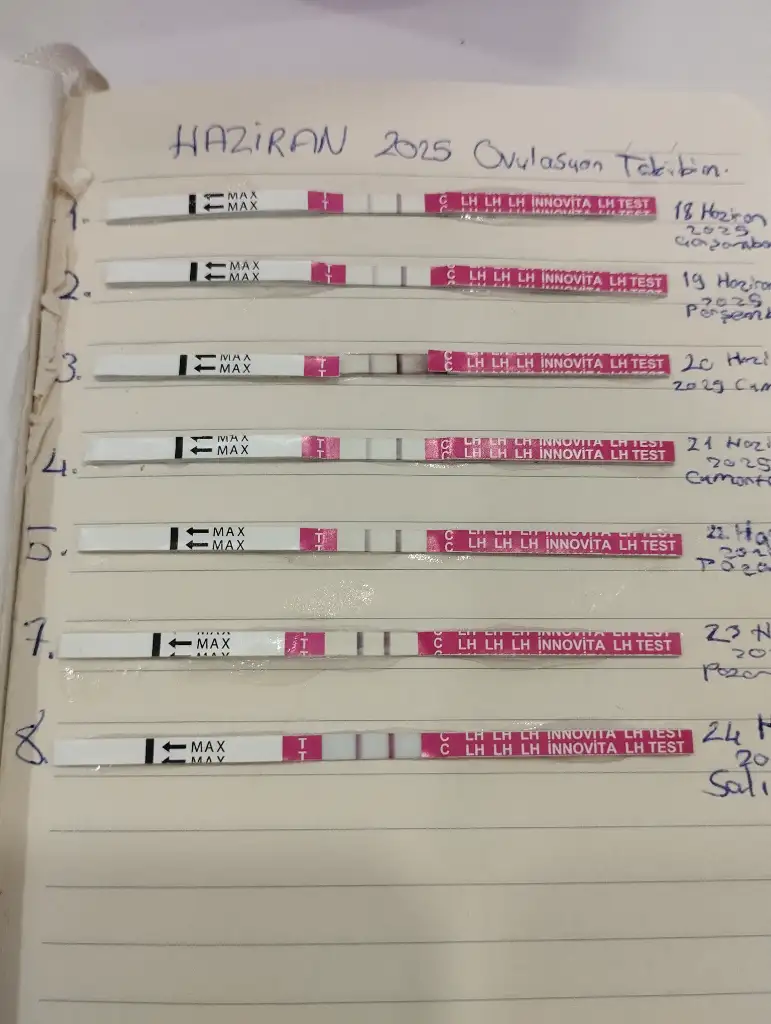 HAZİRAN 2025 Ovulasyon Takibim.
1. MAX MAX T T C C LH LH LH İNNOVİTA LH TEST 18 Haziran
2025
Çarşamba
2. MAX MAX T T C C LH LH LH İNNOVİTA LH TEST 19 Haziran
2025
Perşemb
3. MAX MAX T T C C LH LH LH İNNOVİTA LH TEST 20 Hazi
2025 Cum
4. MAX MAX T T C C LH LH LH İNNOVİTA LH TEST 21 Hazi
2025
Cumarte
5. MAX MAX T T C C LH LH LH İNNOVİTA LH TEST 22 Ha
202
Paza
7. MAX T T C C LH LH LH İNNOVİTA LH TEST 23 H
20
Pazar
8. MAX MAX T T C C LH LH LH İNNOVİTA LH TEST 24 H
20
Salı